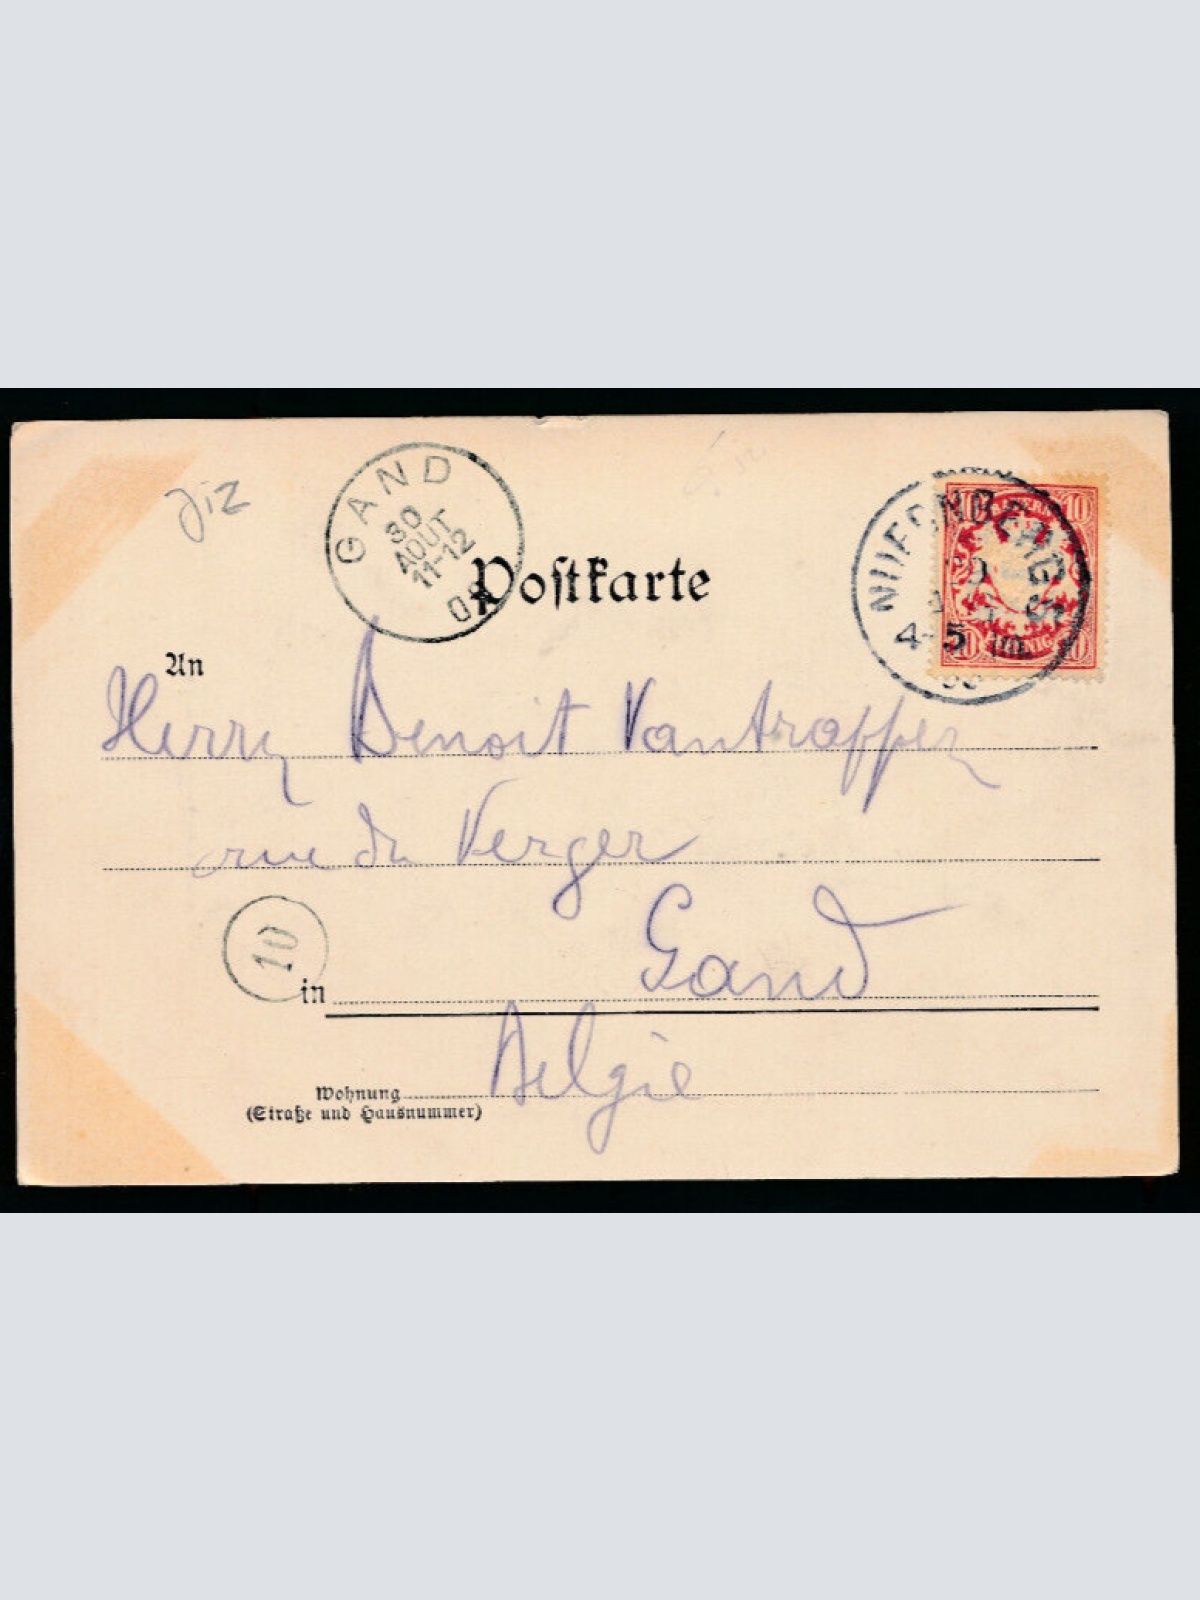 GAND
30
AOUT
11-12
NUERNBERG
4-5
10 10
Postkarte
An
Herrn Benoit Vantrappen
rue du Verger
10
Gand
in
Belgie
Wohnung
(Straße und Hausnummer)